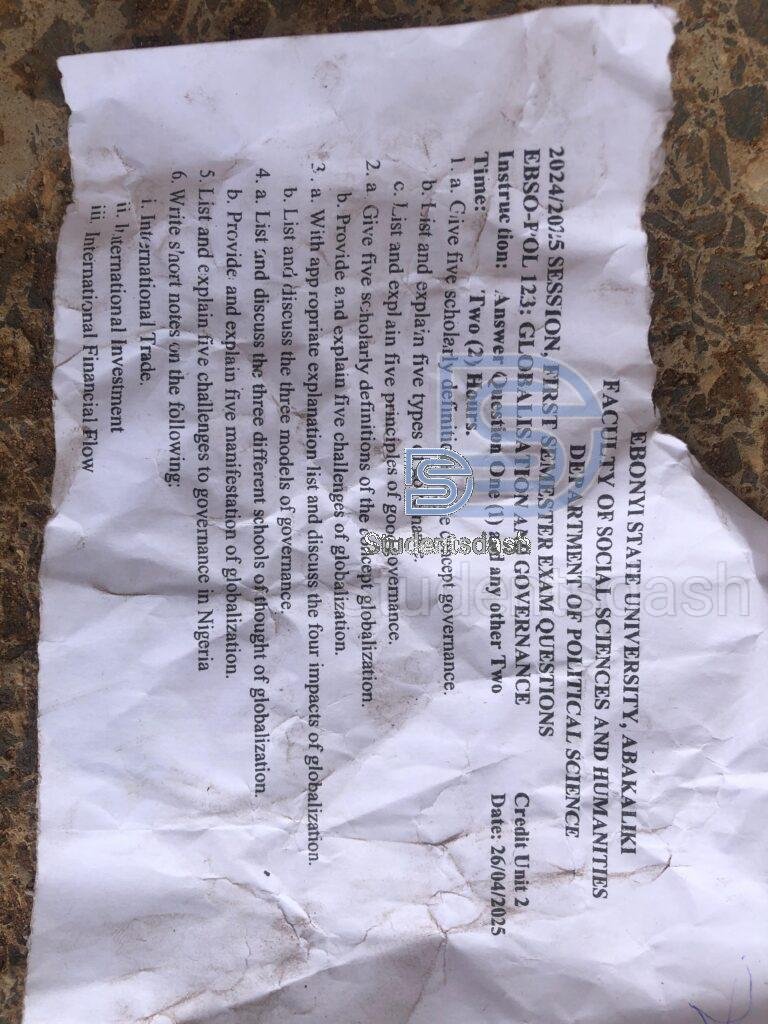 EBONYI STATE UNIVERSITY, ABAKALIKI
FACULTY OF SOCIAL SCIENCES AND HUMANITIES
DEPARTMENT OF POLITICAL SCIENCE
2024/2025 SESSION, FIRST SEMESTER EXAM QUESTIONS
EBSO-POL 123: GLOBALISATION AND GOVERNANCE Credit Unit 2
Instruction: Answer Question One (1) and any other Two Date: 26/04/2025
Time: Two (2) Hours.
1. a. Give five scholarly concept governance.
b. List and explain five types
c. List and explain five principles of good governance.
2. a Give five scholarly definitions of the concept globalization.
b. Provide and explain five challenges of globalization.
3. a. With appropriate explanation list and discuss the four impacts of globalization.
b. List and discuss the three models of governance.
4. a. List and discuss the three different schools of thought of globalization.
b. Provide and explain five manifestation of globalization.
5. List and explain five challenges to governance in Nigeria
6. Write short notes on the following:
i. International Trade.
ii. International Investment
iii International Financial Flow
Studentsdash
Studentsdash